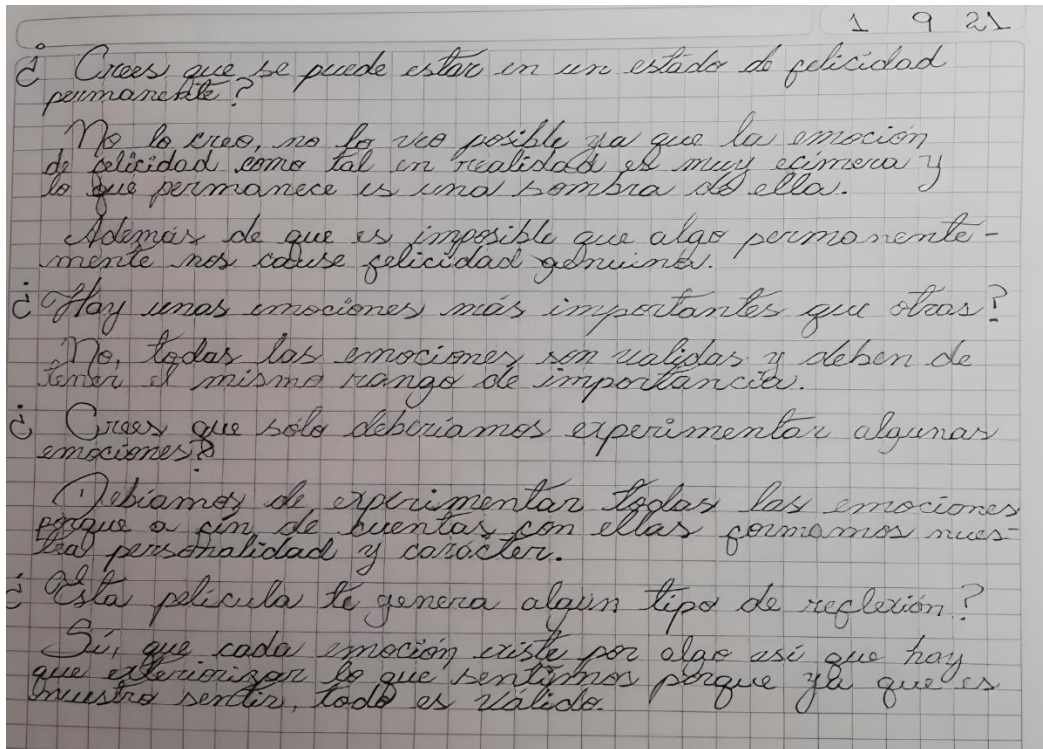 1 9 21
¿Crees que se puede estar en un estado de felicidad
permanente?
No lo creo, no lo veo posible ya que la emoción
de felicidad como tal en realidad es muy efímera y
lo que permanece es una sombra de ella.
Además de que es imposible que algo permanente-
mente nos cause felicidad genuina.
¿Hay unas emociones más importantes que otras?
No, todas las emociones son validas y deben de
tener el mismo rango de importancia.
¿Crees que sólo deberiamos experimentar algunas
emociones?
Debiamos de experimentar todas las emociones
porque a fin de cuentas con ellas formamos nues-
tra personalidad y carácter.
¿Esta película te genera algún tipo de reflexión?
Sí, que cada emoción existe por algo asi que hay
que exteriorizar lo que sentimos porque ya que es
nuestro sentir, todo es válido.